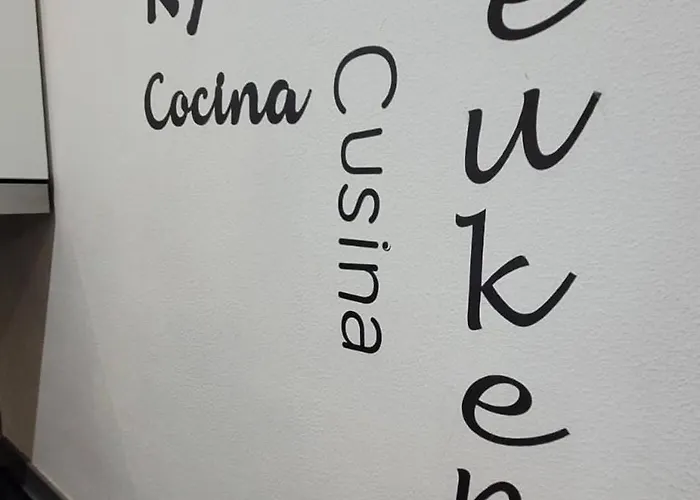 Cocina
Cusina
euken